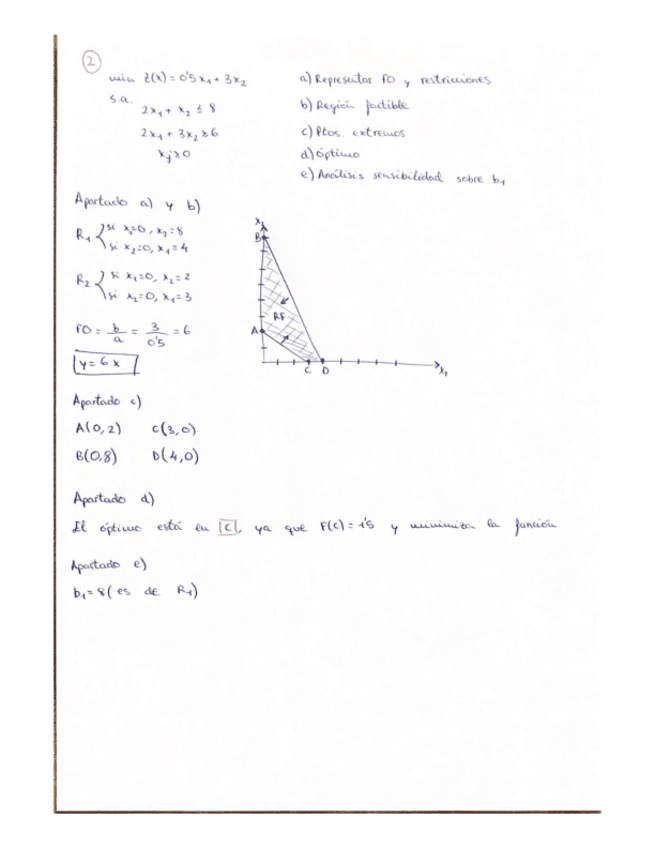 2
min Z(x) = 0'5x₁ + 3x₂
s.a.
2x₁ + x₂ ≤ 8
2x₁ + 3x₂ ≥ 6
xj ≥ 0
a) Representar FO y restricciones
b) Región factible
c) Ptos. extremos
d) Óptimo
e) Análisis sensibilidad sobre b₁
Apartado a) y b)
R₁ { si x₁=0, x₂=8
si x₂=0, x₁=4
R₂ { si x₁=0, x₂=2
si x₂=0, x₁=3
FO = b/a = 3/0'5 = 6
y = 6x
x₂
B
RF
A
C D
x₁
Apartado c)
A(0,2) C(3,0)
B(0,8) D(4,0)
Apartado d)
El óptimo está en C, ya que F(C) = 1'5 y minimiza la función
Apartado e)
b₁ = 8 (es de R₁)